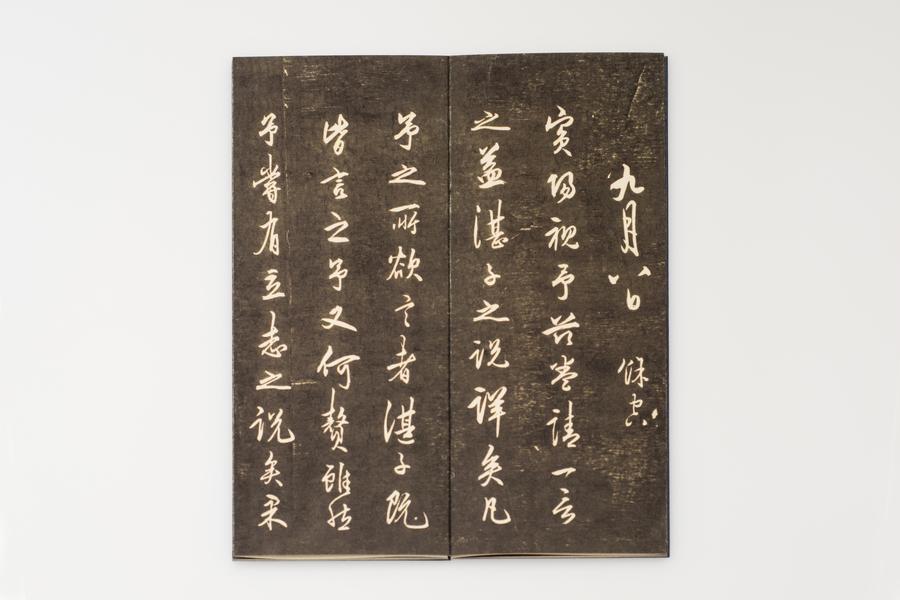 九月八日 守
賓陽視予卷請一言
之益湛子之说詳矣凡
予之所欲言者湛子既
皆言之予又何贅雖然
予嘗有立志之说矣果